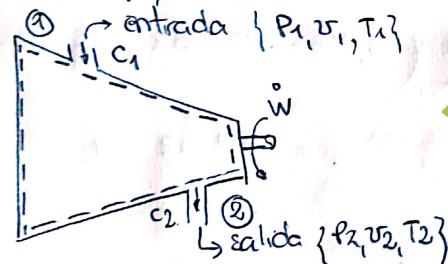 ① entrada {P1, v1, T1}
C1
Ẇ
C2 ②
salida {P2, v2, T2}